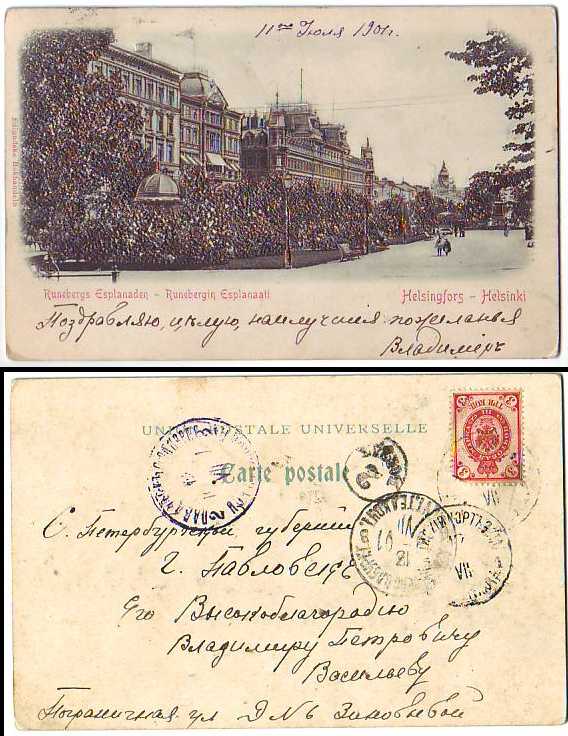 11го Июля 1901г.
Runebergs Esplanaden – Runebergin Esplanaati
Helsingfors – Helsinki
Поздравляю, цѣлую, наилучшія пожеланья
Владимиръ
UNION POSTALE UNIVERSELLE
Carte postale
С. Петербургской губерніи
г. Павловскъ
Его Высокоблагородію
Владимиру Петровичу
Васильеву
Пограничная ул Д № Зиновьевой